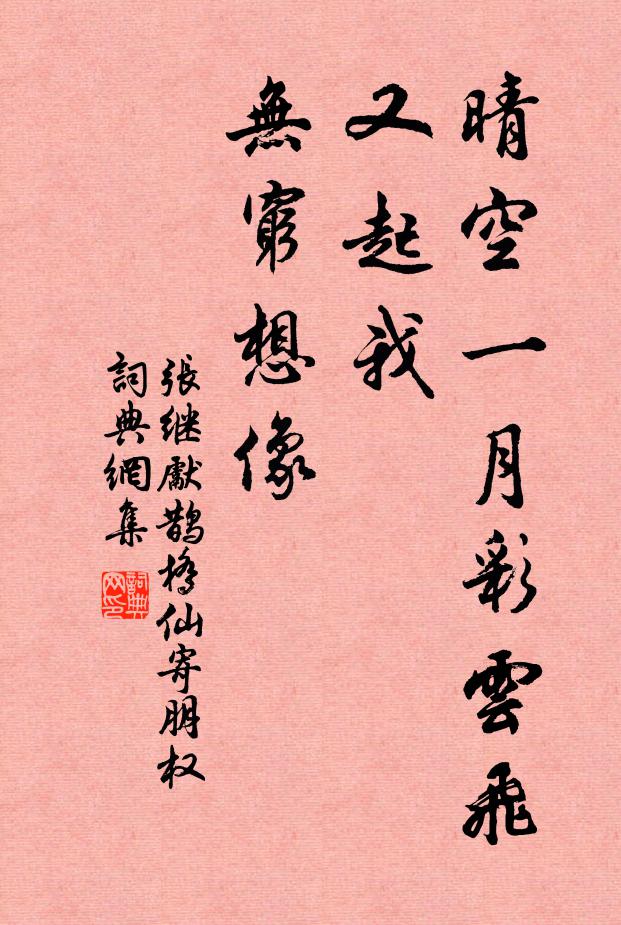 晴空一月彩雲飛
又起我
無窮想像
張继獻鵲橋仙寄朋权
詞典網集
詞典网印